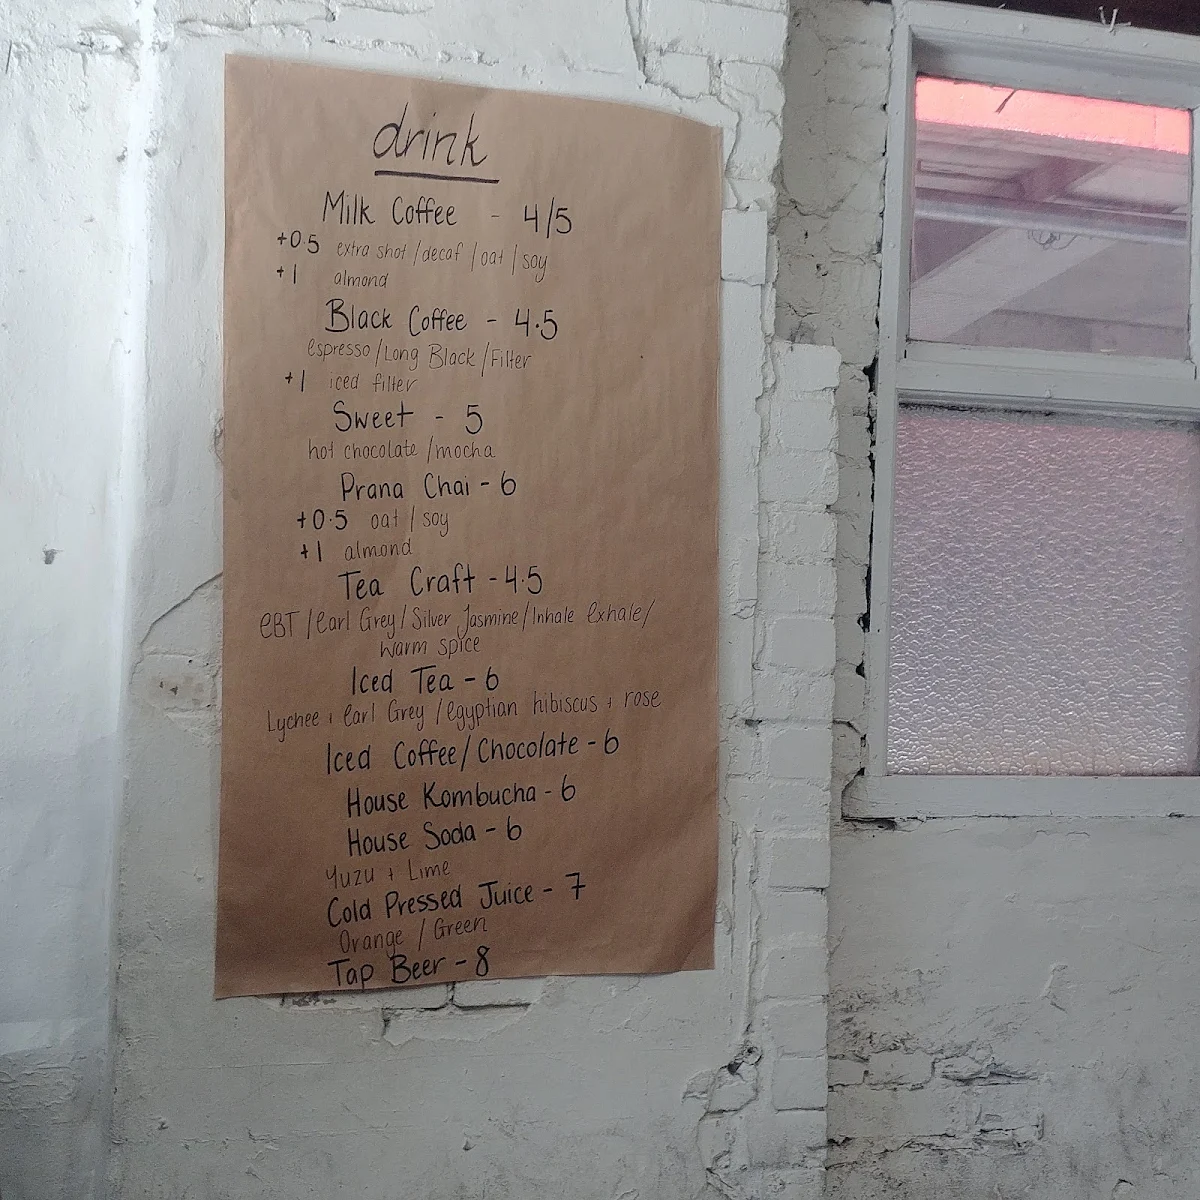 drink
Milk Coffee - 4/5
+0.5 extra shot/decaf/oat/soy
+1 almond
Black Coffee - 4.5
espresso/Long Black/Filter
+1 iced filter
Sweet - 5
hot chocolate/mocha
Prana Chai - 6
+0.5 oat/soy
+1 almond
Tea Craft - 4.5
EBT/Earl Grey/Silver Jasmine/Inhale Exhale/
warm spice
Iced Tea - 6
Lychee + Earl Grey/Egyptian hibiscus + rose
Iced Coffee/Chocolate - 6
House Kombucha - 6
House Soda - 6
Yuzu + Lime
Cold Pressed Juice - 7
Orange/Green
Tap Beer - 8